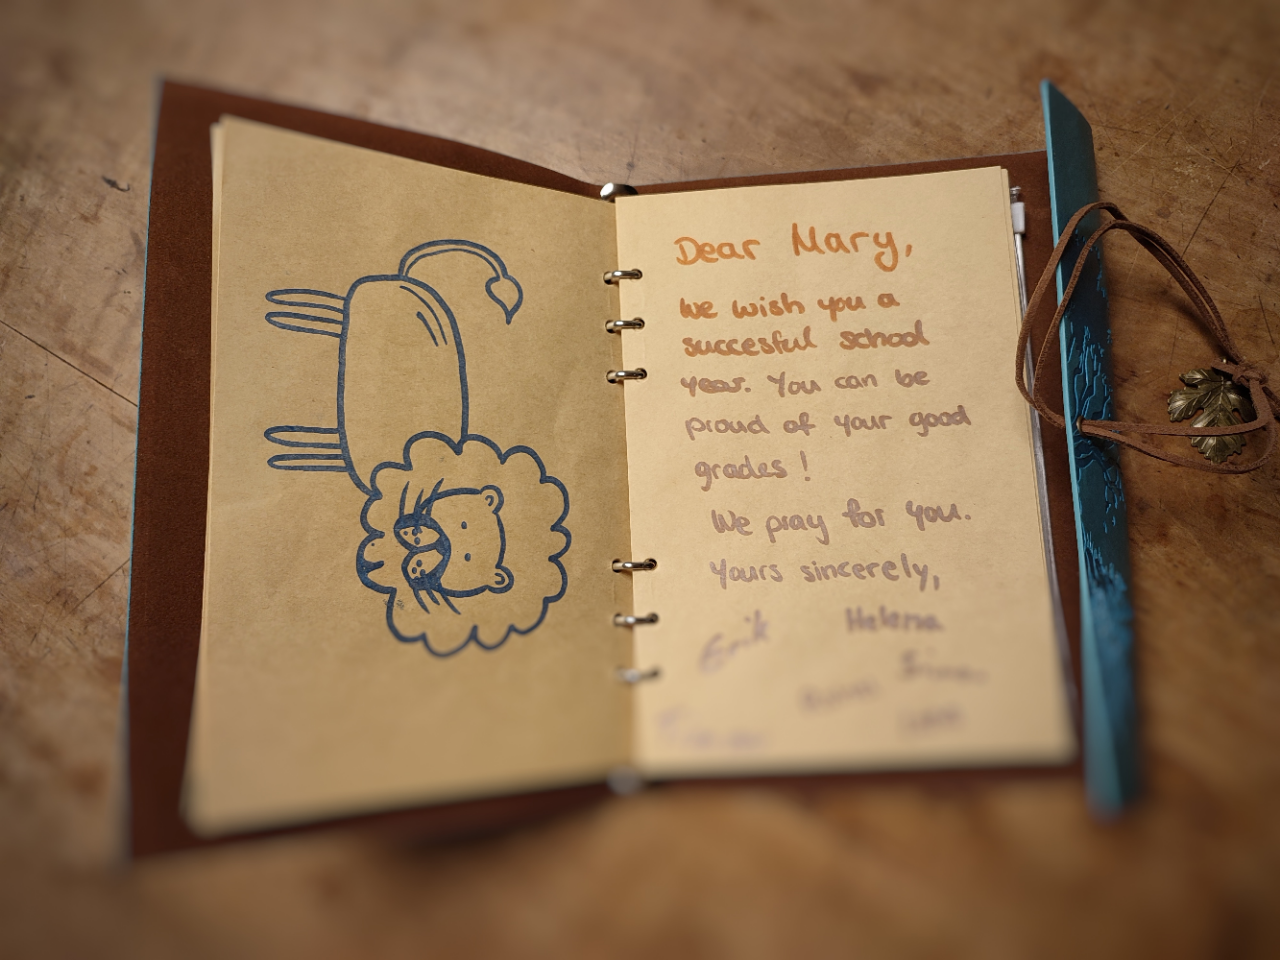 Dear Mary,
We wish you a
succesful school
year. You can be
proud of your good
grades!
We pray for you.
Yours sincerely,
Erik Helena